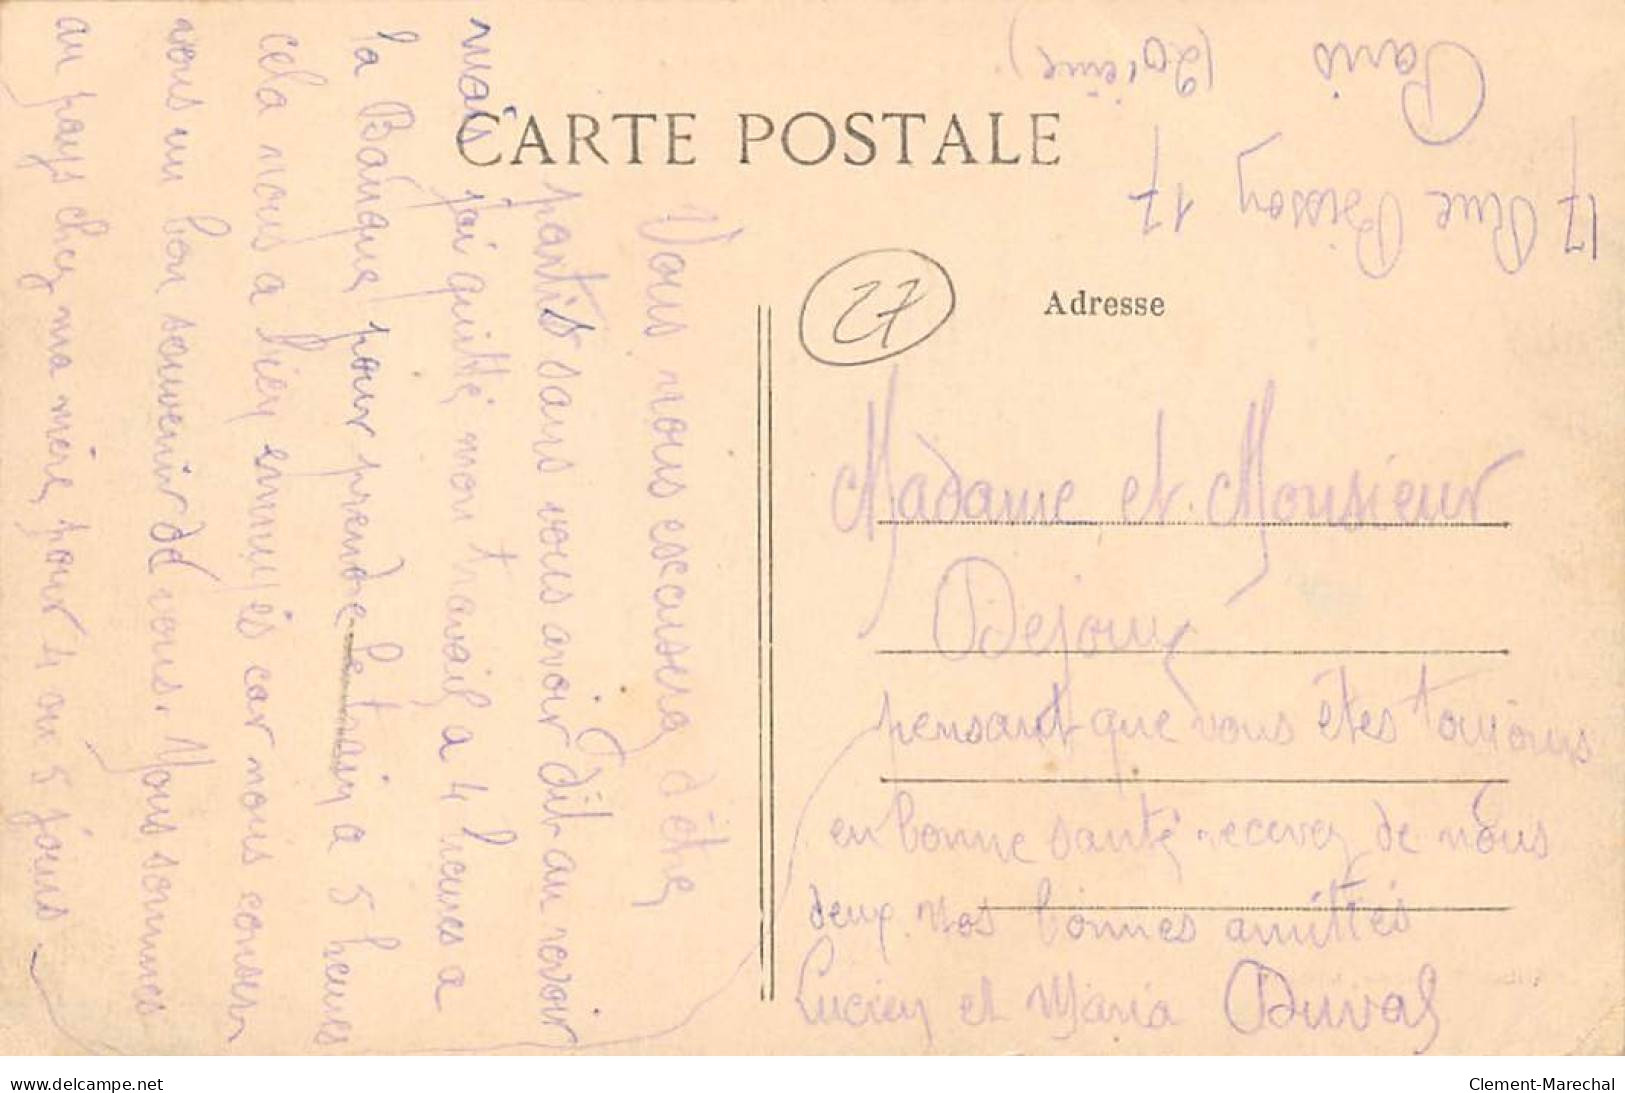 CARTE POSTALE
Adresse
27
17 Rue Bisson 17
Paris
(20ième)
Madame et Monsieur
Dejoux
Vous nous excuserez d'être
partis sans vous avoir dit au revoir
mais j'ai quitté mon travail a 4 heures a
la Banque pour prendre le train a 5 heures
cela nous a bien ennuyés car nous conser
vons un bon souvenir de vous. Nous sommes
au pays chez ma mère, pour 4 ou 5 jours
pensant que vous êtes toujours
en bonne santé recevez de nous
deux nos bonnes amitiés
Lucien et Maria Duval
www.delcampe.net
Clement-Marechal